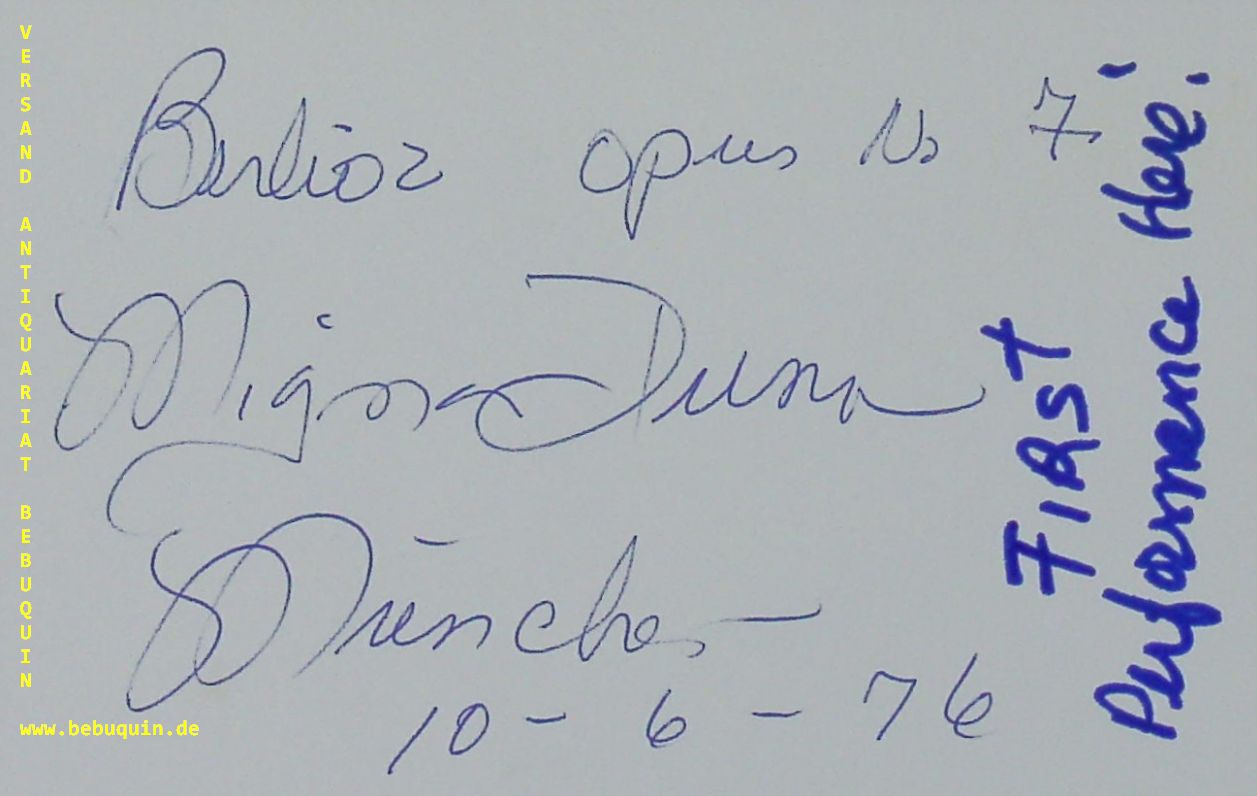 Berlioz opus No 7
Mignon Dunn
München
10 - 6 - 76
First
Performance Here!
VERSAND ANTIQUARIAT BEBUQUIN
www.bebuquin.de